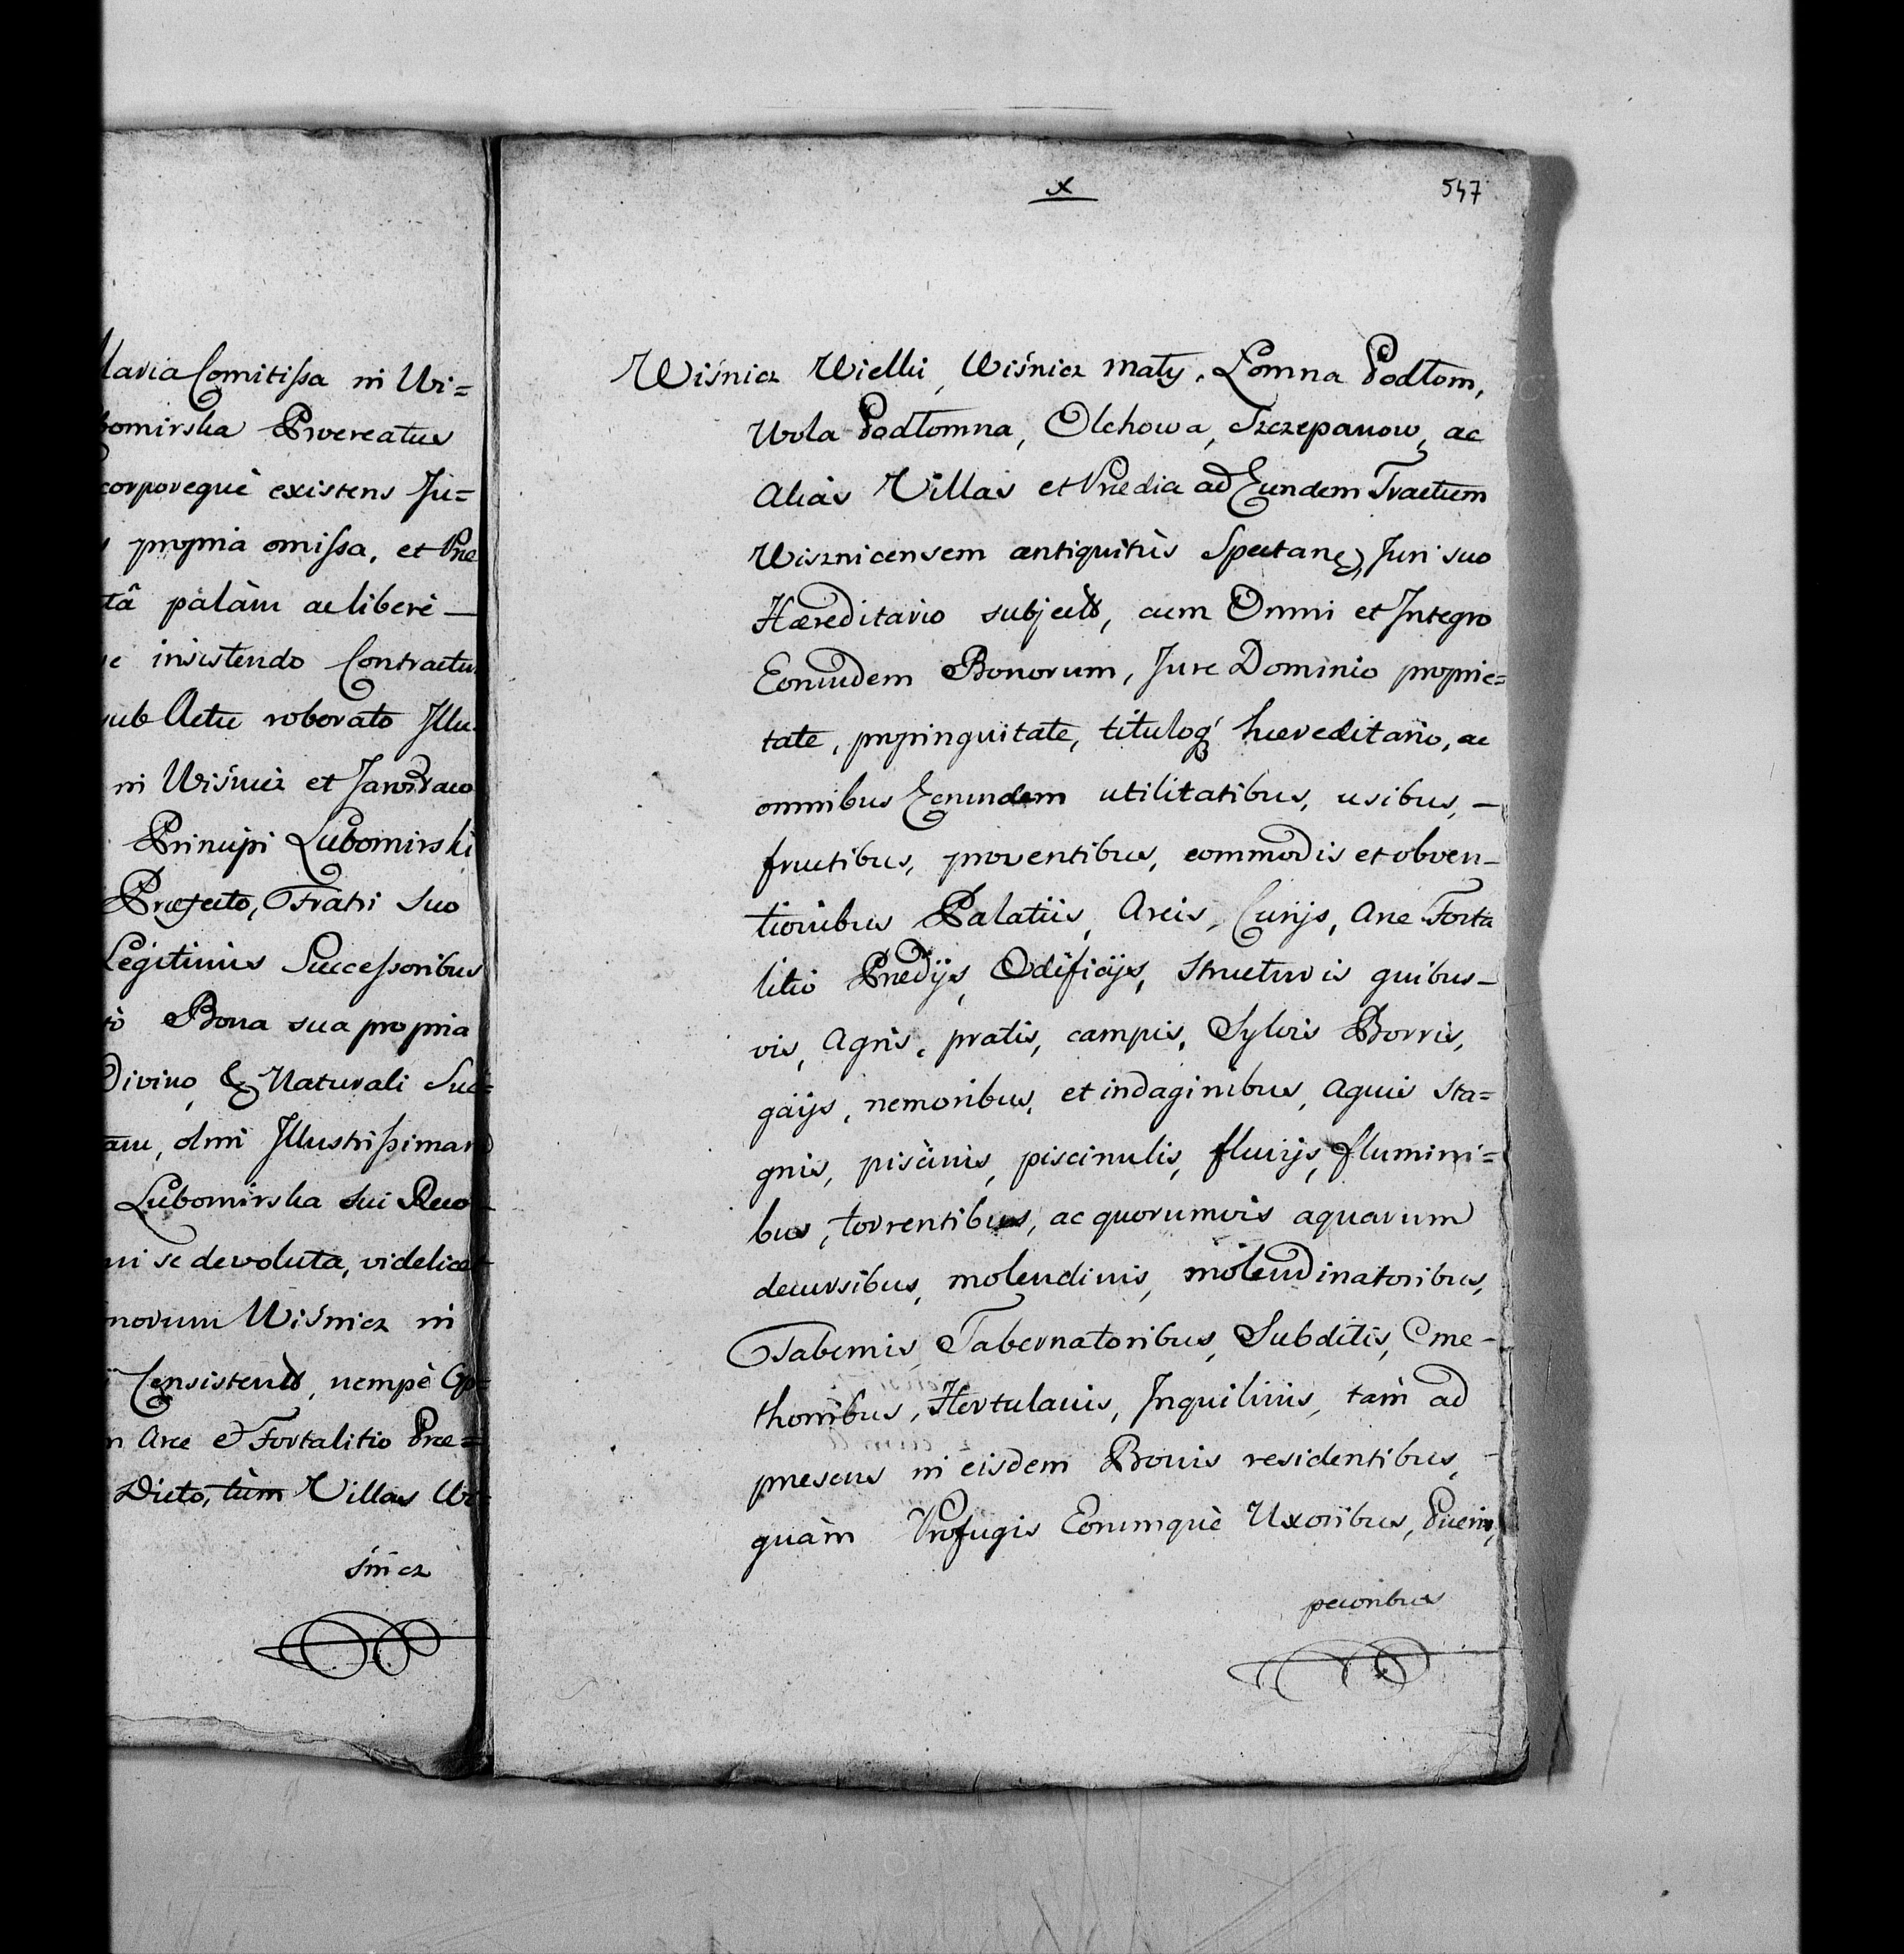 laria Comitissa in Wi=
bomirska Procreatus
corporequè existens Ju=
propria omissa, et Præ
tâ palàm ac liberè —
insistendo Contractu
sub Actu roborato Illu
in Wiśnicz et Jarosław
Principi Lubomirski
Præfecto, Fratri Suo
Legitimis Successoribus
Bona sua propria
Divino, & Naturali Suc=
am, olmi Illustrissimam
Lubomirska sui
ni se devoluta, videlicet
norum Wiśnicz in
Consistentes, nempè Op=
n Arce & Fortalitio Præ=
Dicto, tùm Villas Wi=
śnicz
x
547
Wiśnicz Wielki, Wiśnicz mały, Łomna Podłom,
Wola Podłomna, Olchowa, Szczepanow, ac
Aliàs Villas et Prædia ad Eundem Tractum
Wisznicensem antiquitùs Spectane, Juri suo
Hæreditario subjectas, cum Omni et Integro
Eorundem Bonorum, Jure Dominio proprie=
tate, propinquitate, tituloq hæreditario, ac
omnibus Eorundem utilitatibus, usibus, —
fructibus, proventibus, commodis et obven-
tionibus Palatiis, Areis, Curijs, Arce Forta
litio Prædijs, Ædificijs, structuris quibus-
vis, Agris, pratis, campis, Sylvis Borris,
gäijs, nemoribus, et indaginibus, aquis sta=
gnis, piscinis, piscinulis, fluvijs, flumini=
bus, torrentibus, ac quorumvis aquarum
decursibus, molendinis, molendinatoribus,
Tabernis, Tabernatoribus, Subditis, Cme-
thonibus, Hortulanis, Inquilinis, tàm ad
presens in eisdem Bonis residentibus, -
quàm Profugis Eorumquè Uxoribus, Pueris,
pecoribus